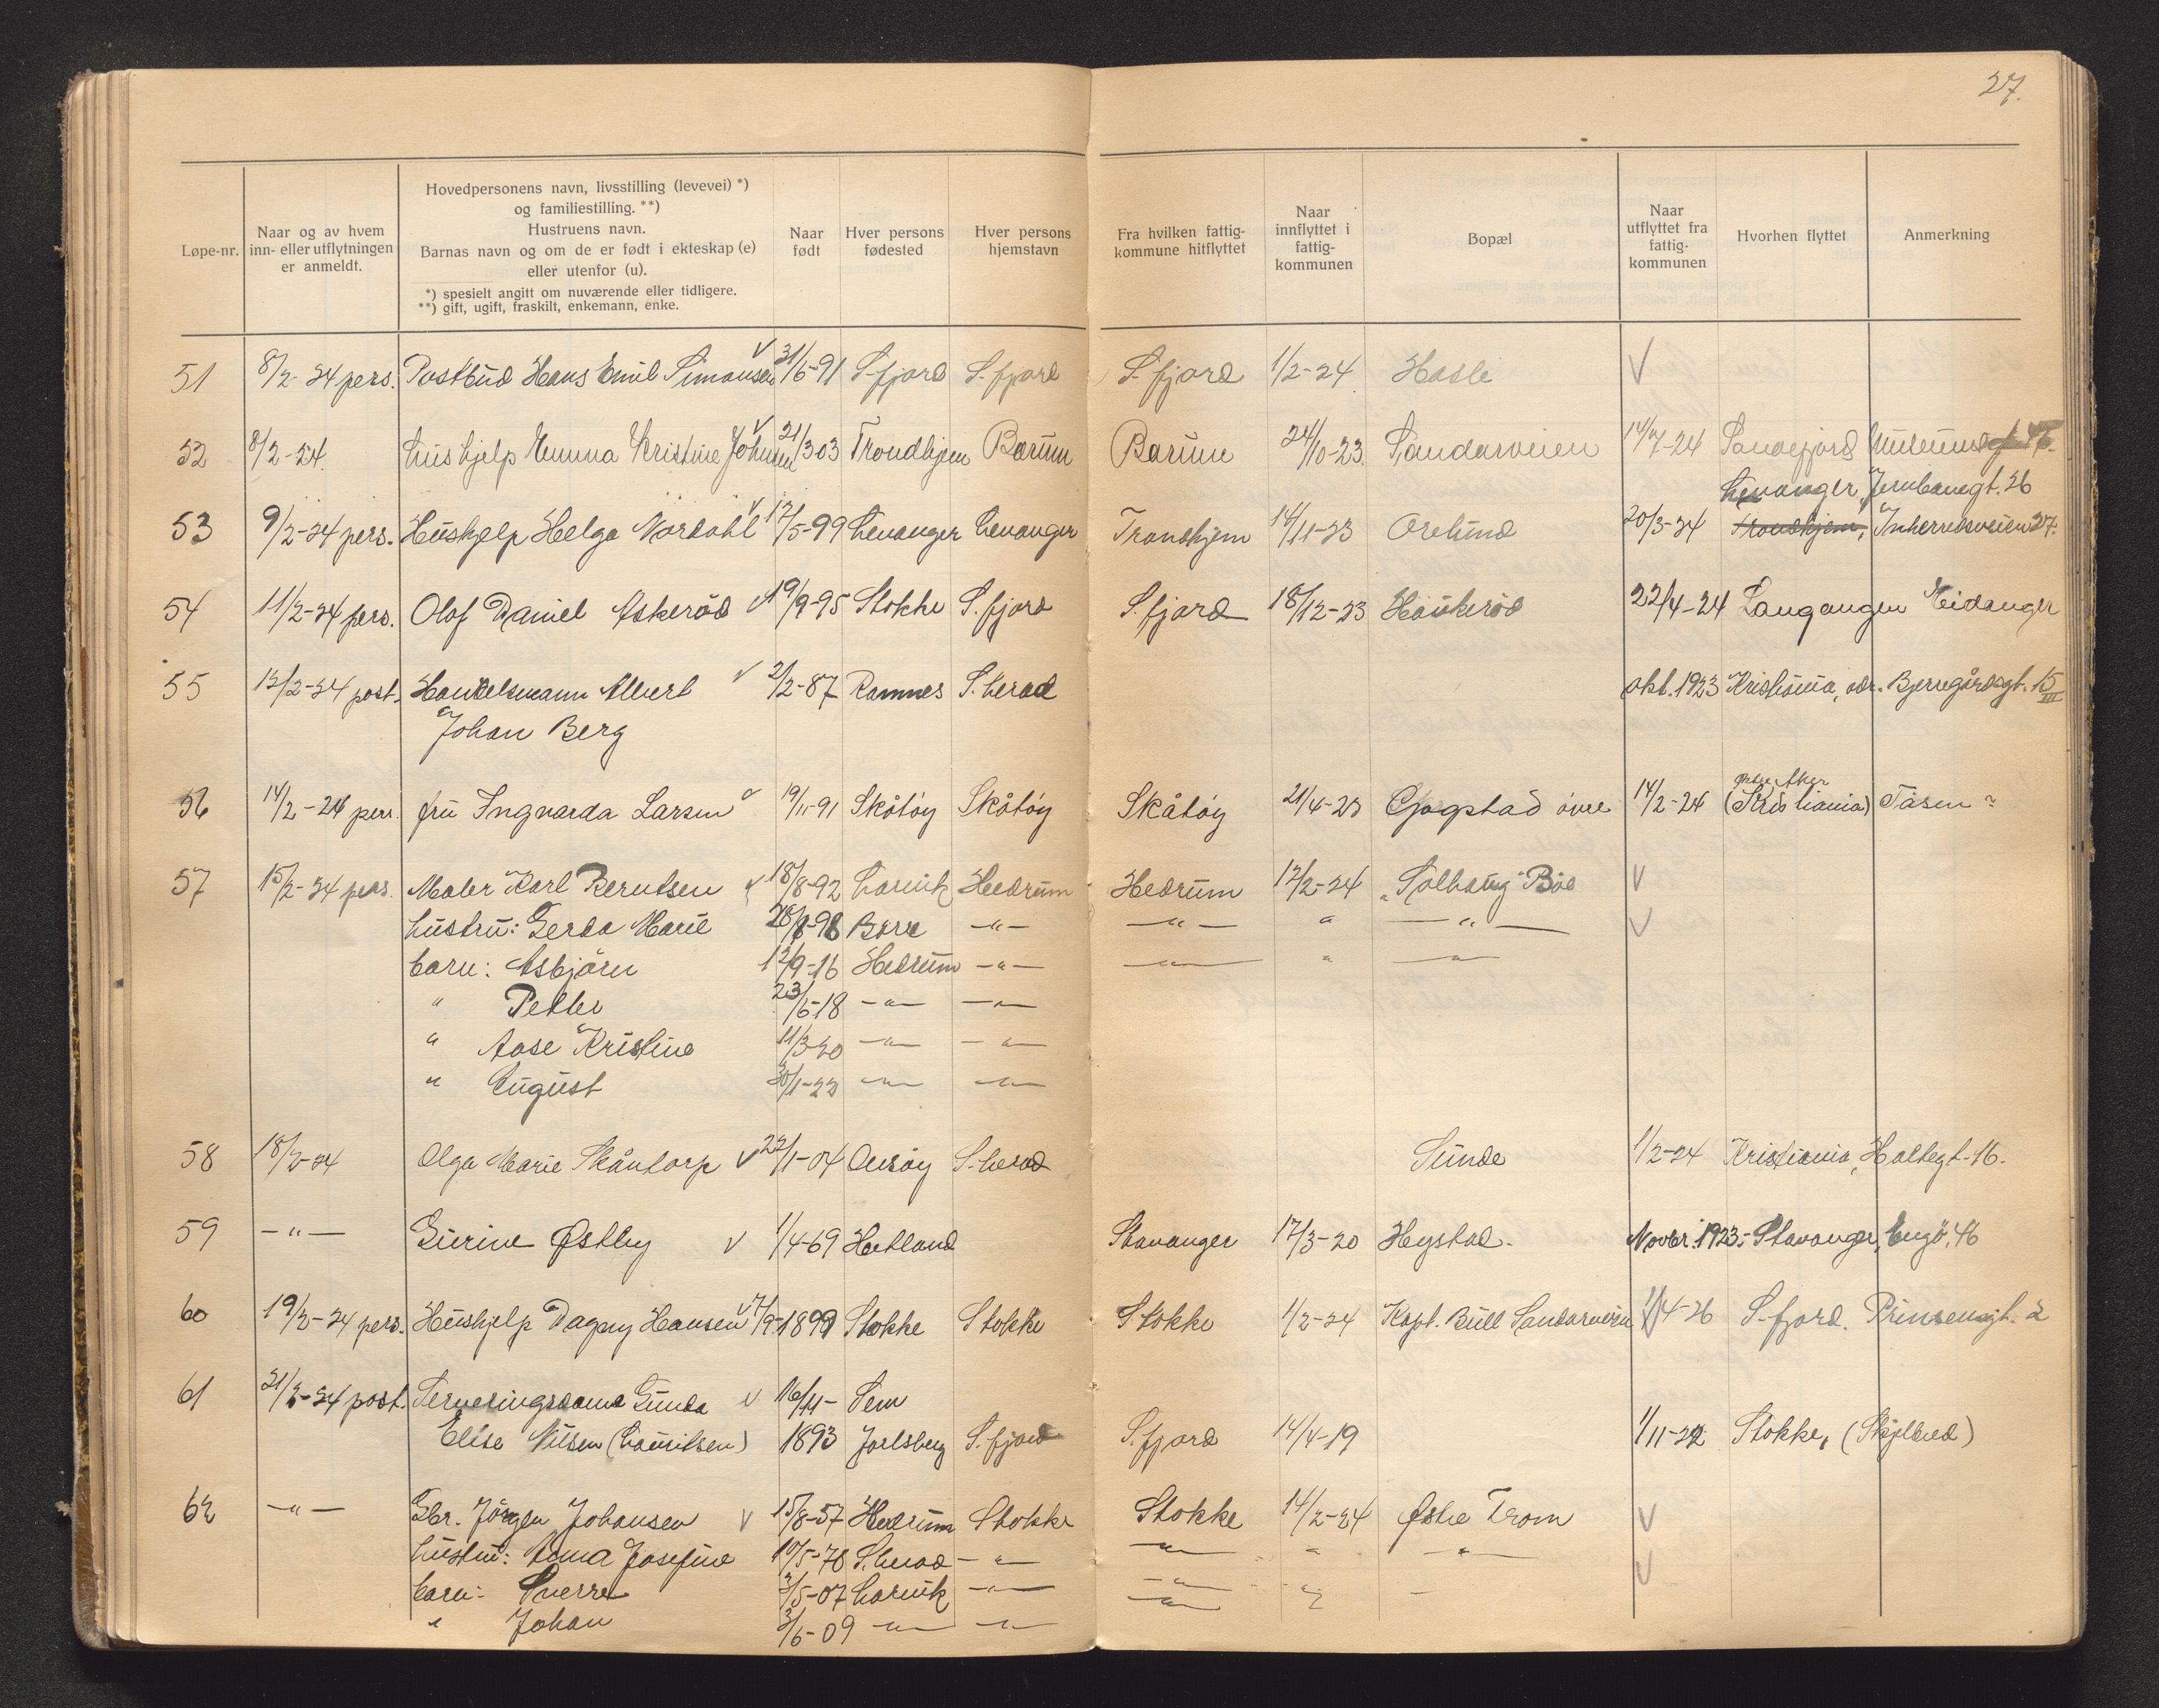 27.
Løpe-nr.
Naar og av hvem
inn- eller utflytningen
er anmeldt.
Hovedpersonens navn, livsstilling (levevei) *)
og familiestilling. **)
Hustruens navn.
Barnas navn og om de er født i ekteskap (e)
eller utenfor (u).
*) spesielt angitt om nuværende eller tidligere.
**) gift, ugift, fraskilt, enkemann, enke.
Naar
født
Hver persons
fødested
Hver persons
hjemstavn
Fra hvilken fattig-
kommune hitflyttet
Naar
innflyttet i
fattig-
kommunen
Bopæl
Naar
utflyttet fra
fattig-
kommunen
Hvorhen flyttet
Anmerkning
51 8/2-24 pers. Postbud Hans Emil Simonsen V 31/5-91 S.fjord S.fjord S.fjord 1/2-24 Hasle V
52 8/2-24. hushjelp Emma Kristine Johnsen V 21/3 03 Trondhjem Barum Barum 24/10-23. Sandarveien 14/7-24 Sandefjord Museumsgt 46.
Levanger, Jernbanegt. 26
53 9/2-24 pers. Hushjelp Helga Nordahl V 12/5-99 Levanger Levanger Trondhjem 14/11-23 Orelund 20/3-24 Trondhjem, Inherredsveien 27.
54 11/2-24 pers. Olof Daniel Askeröd V 19/9-95 Stokke S.fjord S.fjord 18/12-23 Haukeröd 22/4-24 Langangen Eidanger
55 12/2-24 post. Handelsmann Albert V 2/2-87 Ramnes S.herad okt. 1923 Kristiania, adr. Bjerregårdsgt. 15 III
Johan Berg
56 14/2-24 pers. fru Ingvarda Larsen V 19/11-91 Skåtöy Skåtöy Skåtöy 21/4-23 Gjogstad övre 14/2-24 (Kristiania) Tåsen
Aker
57 15/2-24 pers. Maler Karl Berntsen V 18/8-92 Larvik Hedrum Hedrum 12/2-24 "Solhaug" Böe V
hustru: Gerda Marie 28/8-98 Borre -"- -"- " -"- V
barn: Asbjörn 12/9-16 Hedrum -"- -"- " -"-
" Petter 23/6-18 -"- -"-
" Aase Kristine 11/3-20 -"- -"-
" August 30/1-23 -"- -"-
58 18/2-24 Olga Marie Skåntorp V 22/1-04 Onsöy S.herad Sunde 1/2-24 Kristiania, Holtegt. 16.
59 -"- Gurine Østby V 1/4-69 Hetland Stavanger 17/3-20 Hystad. Novbr. 1923.- Stavanger, Engö. 46
60 19/2-24 pers. Hushjelp Dagny Hansen V 7/9-1899 Stokke Stokke Stokke 1/2-24 Kapt. Bull Sandarveien 1/4-26 S.fjord. Prinsensgt. 2
61 21/2-24 post. Serveringsdame Gunda V 16/11- Sem
Elise Nilsen (Lauritsen) 1893 Jarlsberg S.fjord S.fjord 14/4-19 1/11-22 Stokke, (Skjelbred)
62 -"- Gbr. Jörgen Johansen V 15/8-57 Hedrum Stokke Stokke 14/2-24 Østre Trom V
hustru: Anna Josefine 10/5-70 S.herad -"- -"- " -"- V
barn: Sverre 3/5-07 Larvik -"- -"- " -
" Johan 3/6-09 -"- -"- -"- "